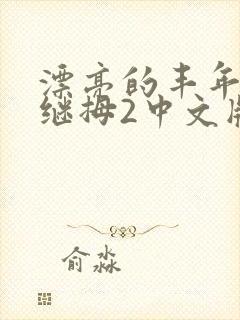 漂亮的丰年
继拇2中文版
俞淼